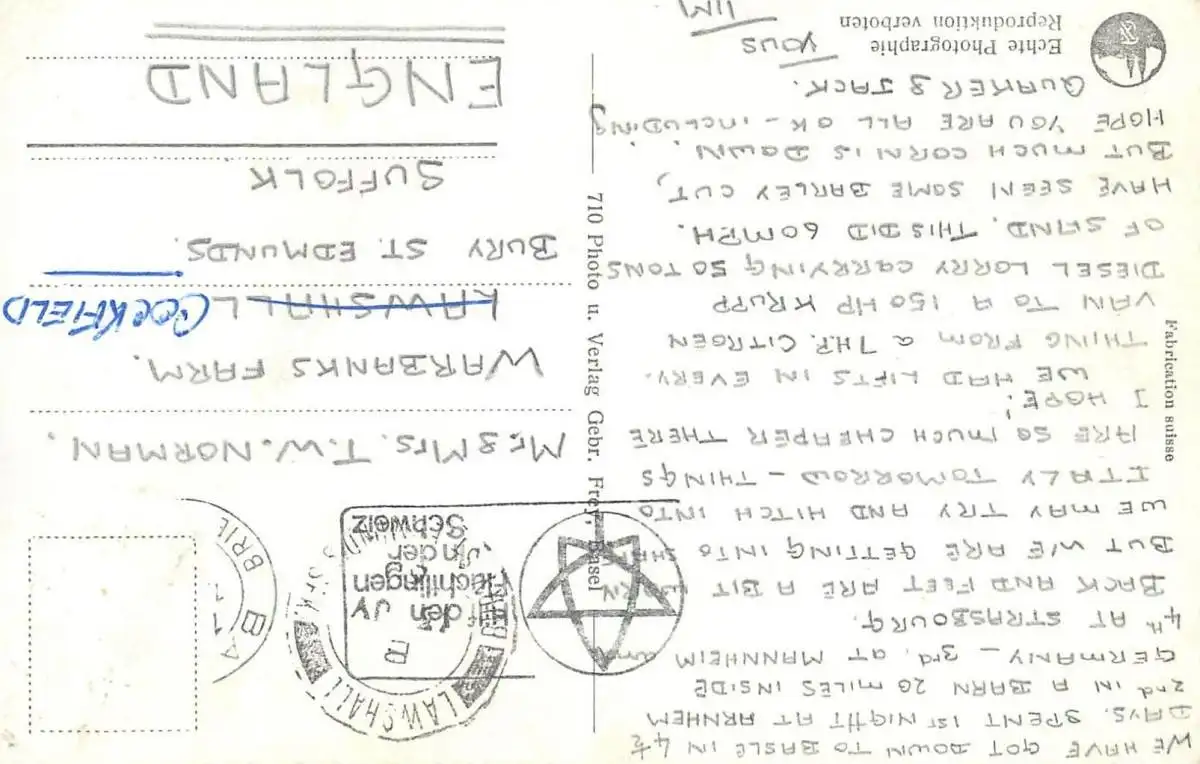 WE HAVE GOT DOWN TO BASLE IN 4½
DAYS. SPENT 1ST NIGHT AT ARNHEM
2nd IN A BARN 20 MILES INSIDE
GERMANY – 3rd AT MANNHEIM
4th AT STRASBOURG.
BACK AND FEET ARE A BIT WORN
BUT WE ARE GETTING INTO
WE MAY TRY AND HITCH INTO
ITALY TOMORROW – THINGS
ARE SO MUCH CHEAPER THERE
I HOPE!
WE HAD LIFTS IN EVERY.
THING FROM a 7 H.P. CITROEN
VAN TO A 150 HP KRUPP
DIESEL LORRY CARRYING 50 TONS
OF SAND. THIS DID 60 MPH.
HAVE SEEN SOME BARLEY CUT,
BUT MUCH CORN IS DOWN.
HOPE YOU ARE ALL OK – INCLUDING
QUAKER & JACK.
YOUS
TIM
Echte Photographie
Reproduktion verboten
Fabrication suisse
710 Photo u. Verlag Gebr. Frey, Basel
LAWSHALL
den
Flüchtlingen
In der
Schweiz
Mr. & Mrs. T.W. NORMAN.
WARBANKS FARM.
LAWSHALL COCKFIELD
BURY ST. EDMUNDS.
SUFFOLK
ENGLAND